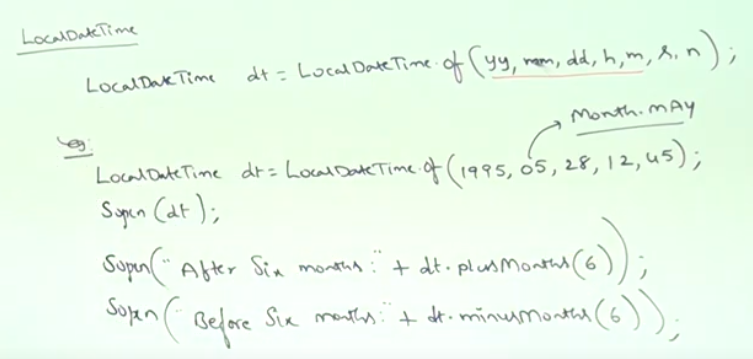 LocalDateTime
LocalDateTime dt = LocalDateTime.of(yy, mm, dd, h, m, s, n);
Month.MAY
eg:
LocalDateTime dt = LocalDateTime.of(1995, 05, 28, 12, 45);
Sopln(dt);
Sopln("After Six months:" + dt.plusMonths(6));
Sopln("Before Six months:" + dt.minusMonths(6));